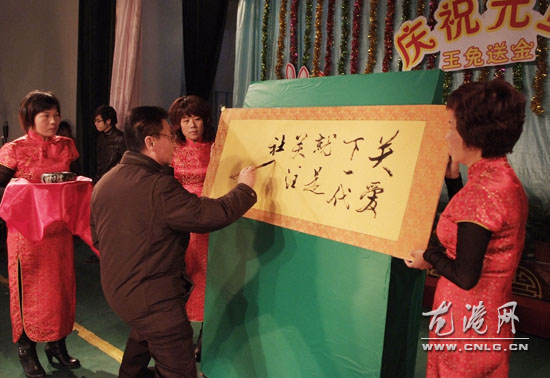 庆祝元
玉兔送金
关爱
下一代
就是
关注
社
龙港网
WWW.CNLG.CN